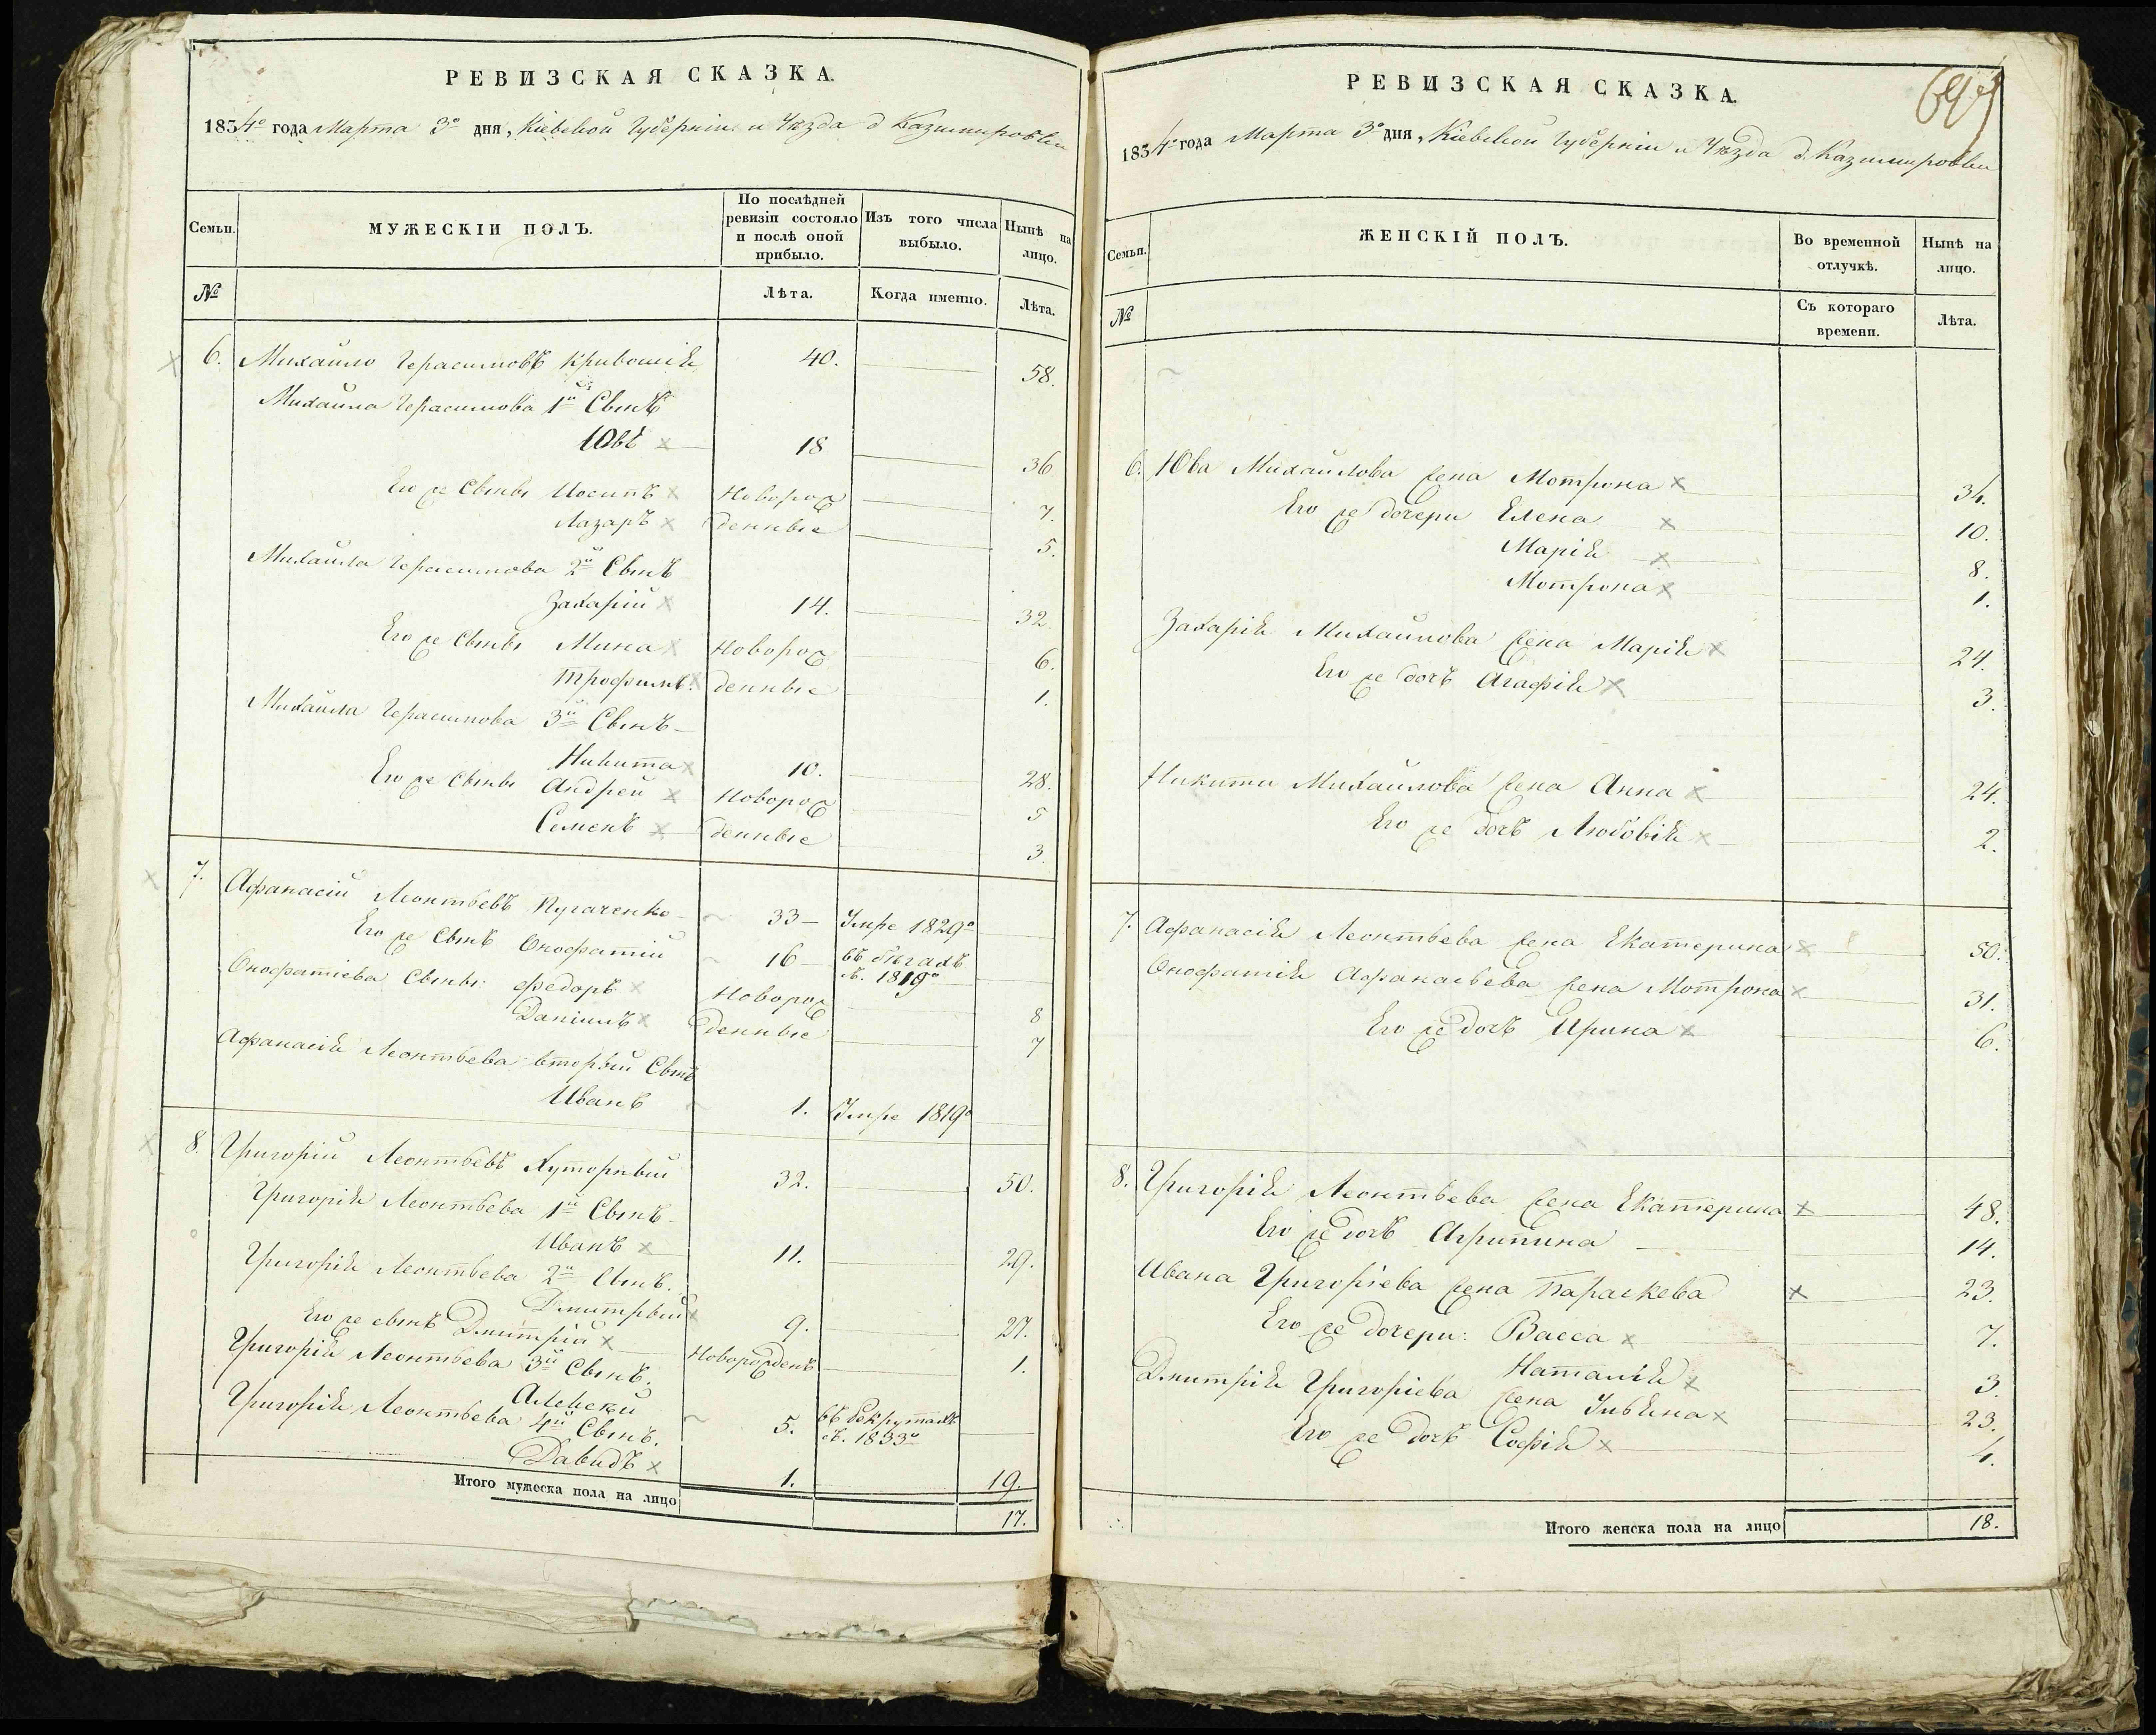 РЕВИЗСКАЯ СКАЗКА.
1834го года Марта 3го дня, Кіевской Губерніи и Уѣзда д Казимировки
Семьи.
МУЖЕСКІЙ ПОЛЪ.
По послѣдней ревизіи состояло и послѣ оной прибыло.
Изъ того числа выбыло.
Нынѣ на лицо.
№
Лѣта.
Когда именно.
Лѣта.
6. Михайло Герасимовъ Кривошія 40. 58.
Михайла Герасимова 1й Сынъ
Іовъ 18 36
Его же Сыны Иосипъ Новорож 7.
Лазаръ денные 5.
Михайла Герасимова 2й Сынъ
Захарій 14. 32.
Его же Сыны Мина Новорож 6.
Трофимъ. денные 1.
Михайла Герасимова 3й Сынъ
Никита 10. 28.
Его же Сыны Андрей Новорож 5
Семенъ денные 3.
7. Афанасій Леонтьевъ Пугаченко 33 Умре 1829го
Его же Сынъ Онофрій 16 въ бѣгахъ
съ. 1819го
Сыны: Федоръ Новорож 8
Даніилъ денные 7
Афанасія Леонтьева вторый Сынъ
Иванъ 1. Умре 1819го
8. Григорій Леонтьевъ Хуторный 32. 50.
Григорія Леонтьева 1й Сынъ
Иванъ 11. 29.
Григорія Леонтьева 2й Сынъ.
Дмитрый 9. 27.
Его же сынъ Дмитрій Новорожденъ 1.
Григорія Леонтьева 3й Сынъ.
Алексѣй 5. въ рекрутахъ
съ. 1833го
Григорія Леонтьева 4й Сынъ.
Давидъ 1. 19.
Итого мужеска пола на лицо 17.
РЕВИЗСКАЯ СКАЗКА.
1834го года Марта 3го дня, Кіевской Губерніи и Уѣзда д. Казимировки
Семьи.
ЖЕНСКІЙ ПОЛЪ.
Во временной отлучкѣ.
Нынѣ на лицо.
№
Съ котораго времени.
Лѣта.
6. Іова Михайлова жена Мотрона 34.
Его же дочери Елена 10.
Марія 8.
Мотрона 1.
Захарія Михайлова жена Марія 24.
Его же дочь Агафія 3.
Никиты Михайлова жена Анна 24.
Его же дочь Любовія 2.
7. Афанасія Леонтьева жена Екатерина 50.
Афанасьева жена Мотрона 31.
Его же дочь Ирина 6.
8. Григорія Леонтьева жена Екатерина 48.
Его же дочь Агрипина 14.
Ивана Григоріева жена Параскева 23.
Его же дочери: Васса 7.
Наталія 3.
Дмитрія Григоріева жена 23.
Его же дочь Софія 4.
Итого женска пола на лицо 18.